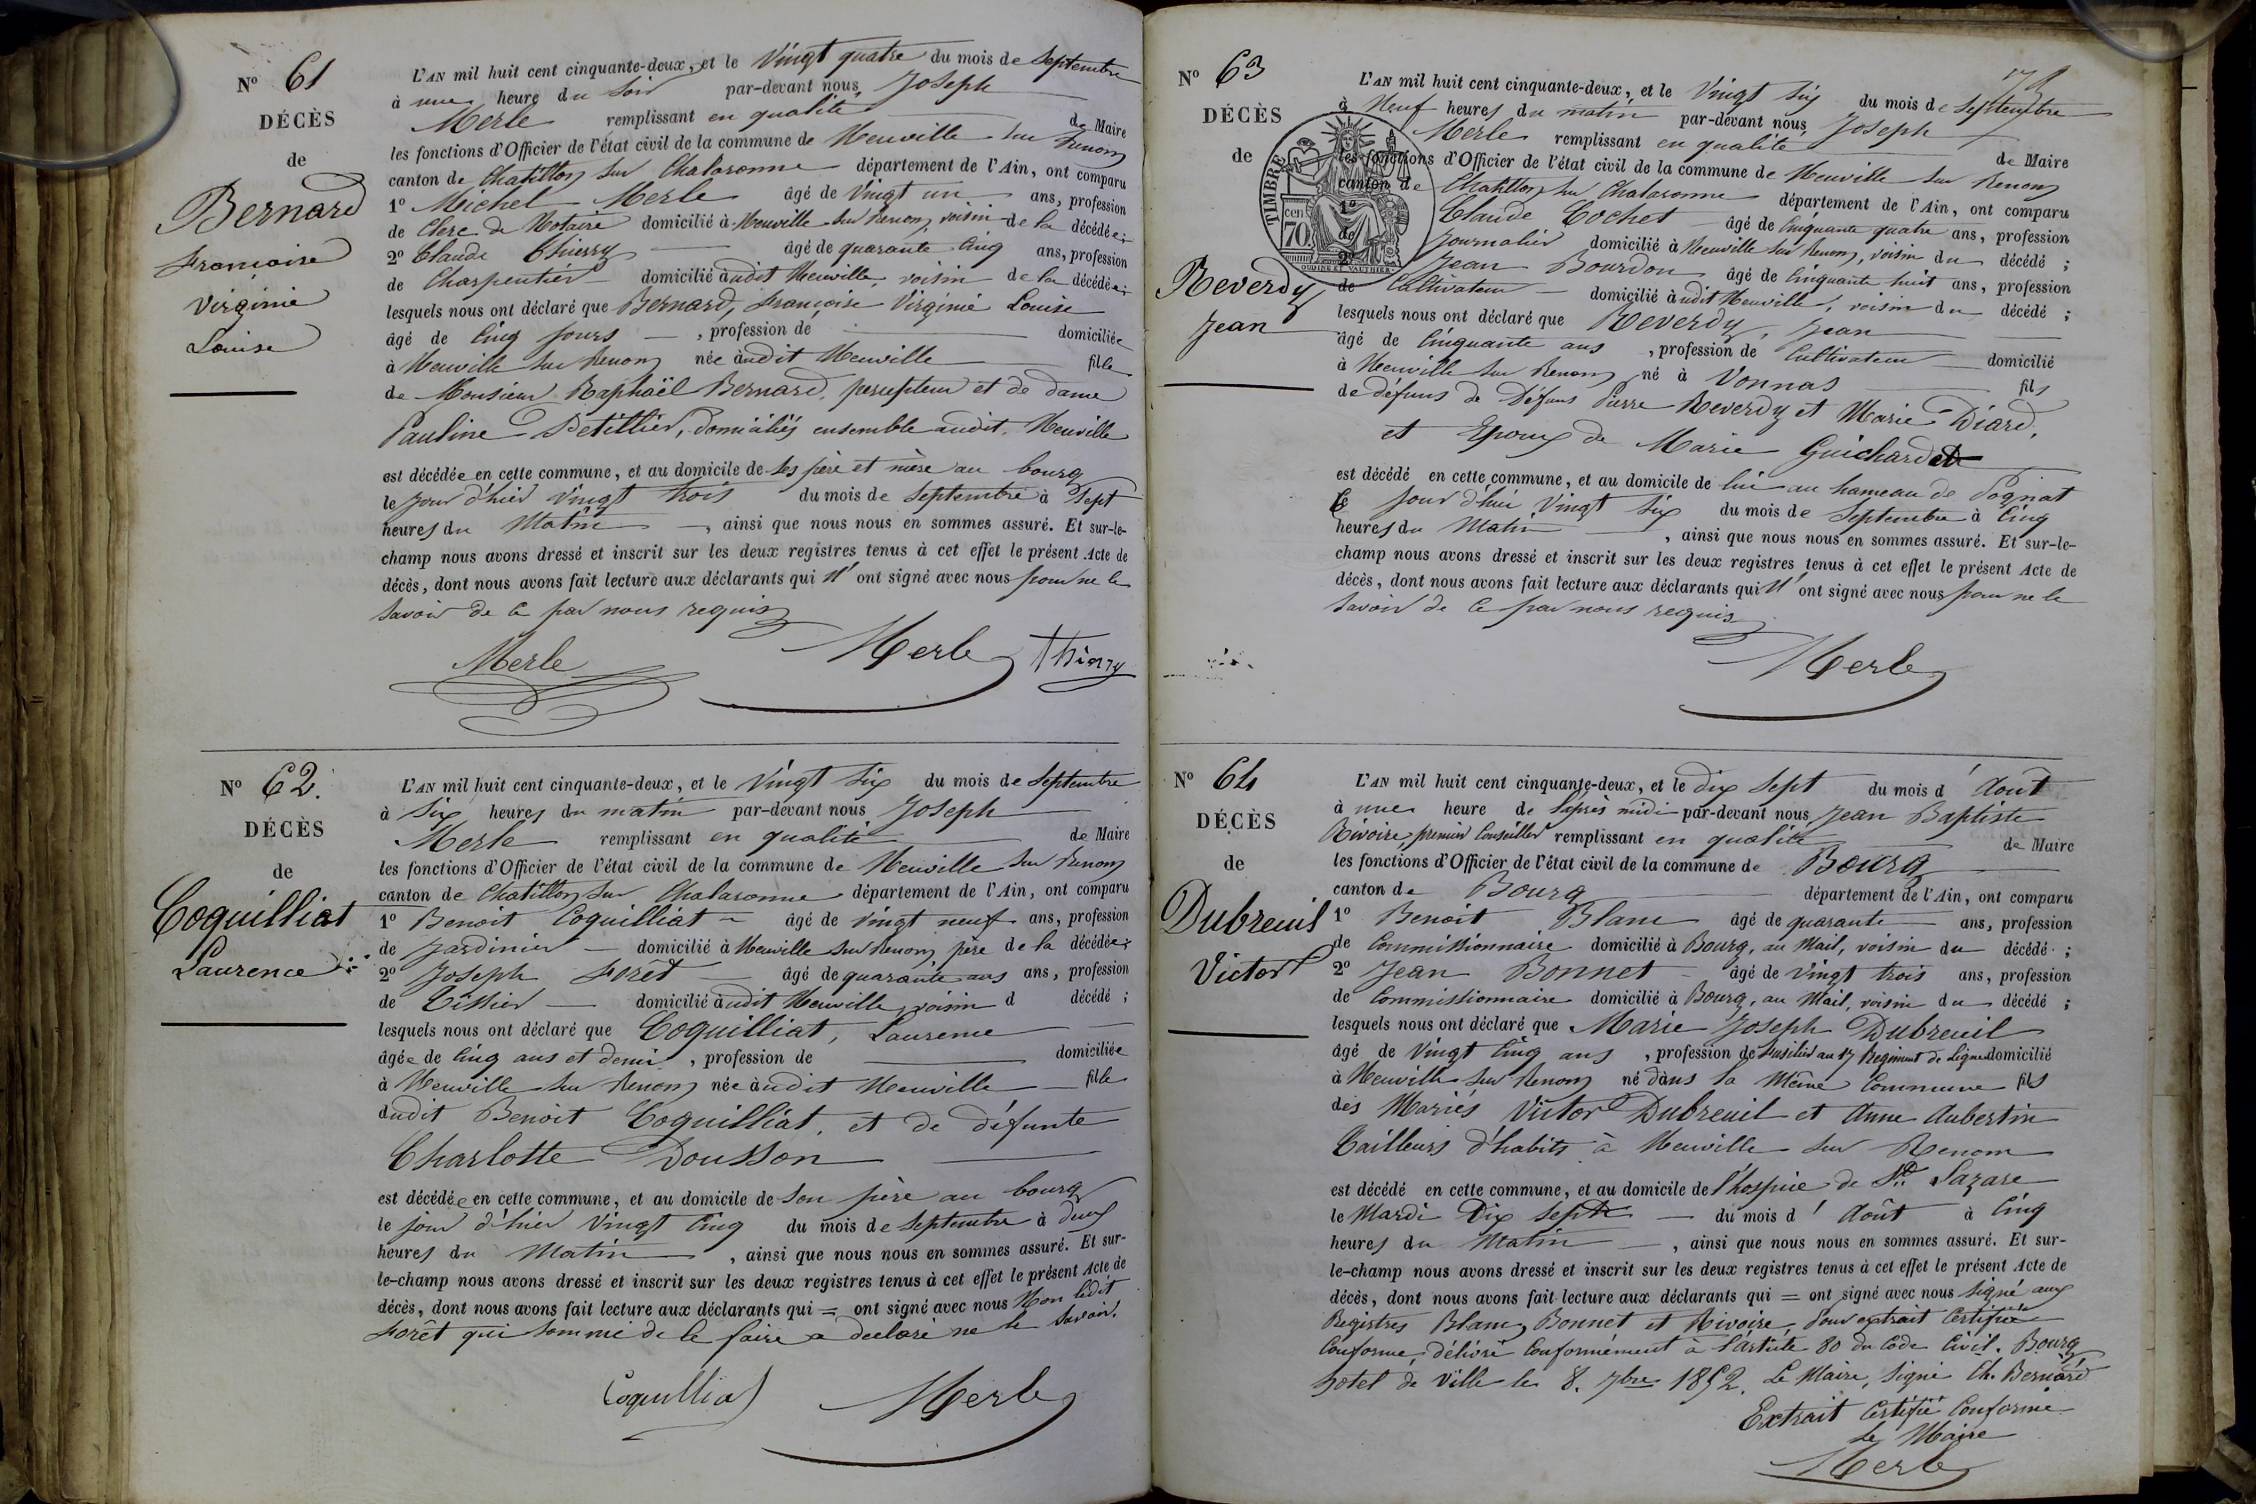 N° 61
DÉCÈS
de
Bernard
Françoise
Virginie
Louise
L'AN mil huit cent cinquante-deux, et le Vingt quatre du mois de Septembre
à une heure du Soir par-devant nous Joseph
Merle remplissant en qualité de Maire
les fonctions d'Officier de l'état civil de la commune de Neuville sur Renom
canton de Chatillon sur Chalaronne département de l'Ain, ont comparu
1° Michel Merle âgé de Vingt un ans, profession
de Clerc de Notaire domicilié à Neuville sur Renom, voisin de la décédée;
2° Claude Thierry âgé de quarante cinq ans, profession
de Charpentier domicilié àudit Neuville, voisin de la décédée;
lesquels nous ont déclaré que Bernard, Françoise Virginie Louise
âgé de Cinq jours, profession de domiciliée
à Neuville sur Renom née àudit Neuville fille
de Monsieur Raphaël Bernard, percepteur et de dame
Pauline Petillier, domiciliés ensemble audit Neuville
est décédée en cette commune, et au domicile de ses père et mère au bourg
le jour d'hier Vingt trois du mois de Septembre à Sept
heures du Matin, ainsi que nous nous en sommes assuré. Et sur-le-
champ nous avons dressé et inscrit sur les deux registres tenus à cet effet le présent Acte de
décès, dont nous avons fait lecture aux déclarants qui n' ont signé avec nous pour ne le
savoir de ce par nous requis
Merle Merle Thierry
N° 62.
DÉCÈS
de
Coquilliat
Laurence
L'AN mil huit cent cinquante-deux, et le Vingt Six du mois de Septembre
à Six heures du matin par-devant nous Joseph
Merle remplissant en qualité de Maire
les fonctions d'Officier de l'état civil de la commune de Neuville sur Renom
canton de Chatillon sur Chalaronne département de l'Ain, ont comparu
1° Benoit Coquilliat âgé de Vingt neuf ans, profession
de Jardinier domicilié à Neuville sur Renom, père de la décédée;
2° Joseph Forêt âgé de quarante ans ans, profession
de domicilié àudit Neuville, voisin d décédé;
lesquels nous ont déclaré que Coquilliat, Laurence
âgée de Cinq ans et demi, profession de domiciliée
à Neuville sur Renom née àudit Neuville fille
dudit Benoit Coquilliat, et de défunte
Charlotte Dousson
est décédée en cette commune, et au domicile de son père au bourg
le jour d'hier Vingt Cinq du mois de Septembre à deux
heures du Matin, ainsi que nous nous en sommes assuré. Et sur-
le-champ nous avons dressé et inscrit sur les deux registres tenus à cet effet le présent Acte de
décès, dont nous avons fait lecture aux déclarants qui = ont signé avec nous Non ledit
Forêt qui sommé de le faire a declaré ne le savoir.
Coquilliat Merle
N° 63
DÉCÈS
de
Reverdy
Jean
TIMBRE
cen 70
OUDINÉ ET VAUTHIER
L'AN mil huit cent cinquante-deux, et le Vingt Six du mois de Septembre
à Neuf heures du matin par-devant nous Joseph
Merle remplissant en qualité de Maire
les fonctions d'Officier de l'état civil de la commune de Neuville sur Renom
canton de Chatillon sur Chalaronne département de l'Ain, ont comparu
1° Claude Cochet âgé de Cinquante quatre ans, profession
de Journalier domicilié à Neuville sur Renom, voisin du décédé;
2° Jean Bourdon âgé de Cinquante huit ans, profession
de Cultivateur domicilié àudit Neuville, voisin du décédé;
lesquels nous ont déclaré que Reverdy, Jean
âgé de Cinquante ans, profession de Cultivateur domicilié
à Neuville sur Renom né à Vonnas fils
de défuns de Défuns Pierre Reverdy et Marie Diard,
et Epoux de Marie Guichard
est décédé en cette commune, et au domicile de lui au hameau de Pognat
Ce jour d'hui Vingt Six du mois de Septembre à Cinq
heures du Matin, ainsi que nous nous en sommes assuré. Et sur-le-
champ nous avons dressé et inscrit sur les deux registres tenus à cet effet le présent Acte de
décès, dont nous avons fait lecture aux déclarants qui n' ont signé avec nous pour ne le
savoir de ce par nous requis
Merle
N° 64
DÉCÈS
de
Dubreuil
Victor
L'AN mil huit cent cinquante-deux, et le dix Sept du mois d' Août
à une heure de l'après midi par-devant nous Jean Baptiste
Rivoire, premier Conseiller remplissant en qualité de Maire
les fonctions d'Officier de l'état civil de la commune de Bourg
canton de Bourg département de l'Ain, ont comparu
1° Benoit Blanc âgé de quarante ans, profession
de Commissionnaire domicilié à Bourg, au Mail, voisin du décédé;
2° Jean Bonnet âgé de Vingt trois ans, profession
de Commissionnaire domicilié à Bourg, au Mail, voisin du décédé;
lesquels nous ont déclaré que Marie Joseph Dubreuil
âgé de Vingt Cinq ans, profession de Fusilier au 17 Regiment de Ligne domicilié
à Neuville sur Renom né dans la Même Commune fils
des Mariés Victor Dubreuil et Anne Aubertin
Tailleurs d'habits à Neuville sur Renom
est décédé en cette commune, et au domicile de l'hospice de St. Lazare
le Mardi Dix Sept du mois d' Août à Cinq
heures du Matin, ainsi que nous nous en sommes assuré. Et sur-
le-champ nous avons dressé et inscrit sur les deux registres tenus à cet effet le présent Acte de
décès, dont nous avons fait lecture aux déclarants qui = ont signé avec nous Signé aux
Registres Blanc, Bonnet et Rivoire, Pour extrait Certifié
Conforme, délivré Conformément à l'Article 80 du Code Civil. Bourg
hotel de Ville le 8. 7bre 1852. Le Maire, Signé Ch. Bernard
Extrait Certifié Conforme
Le Maire
Merle